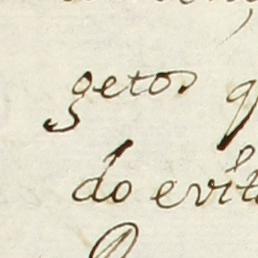 getos q
do evit